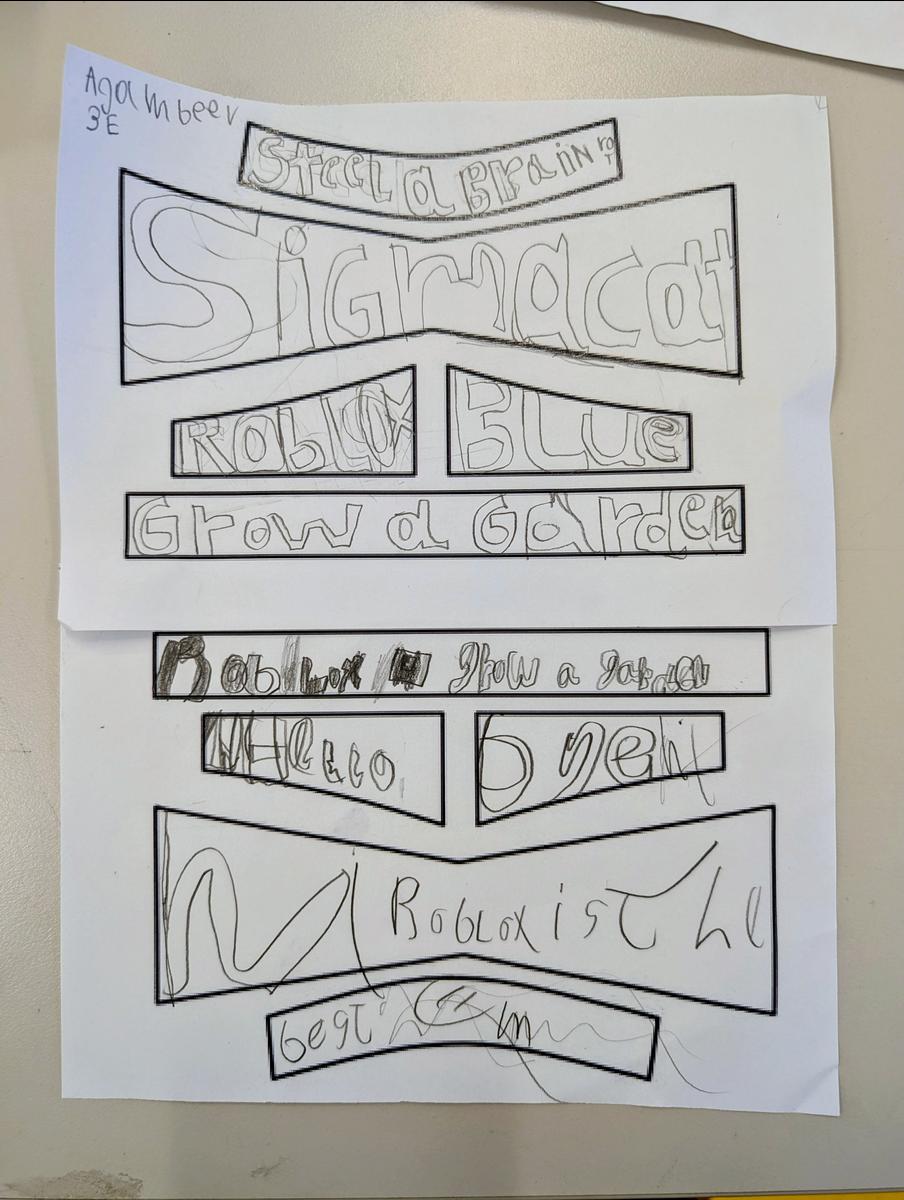 Agambeer
3E
Steel a Brainrot
Sigmacat
Roblox BLUE
Grow a Garden
Roblox Grow a garden
HELLO
Roblox is The
best